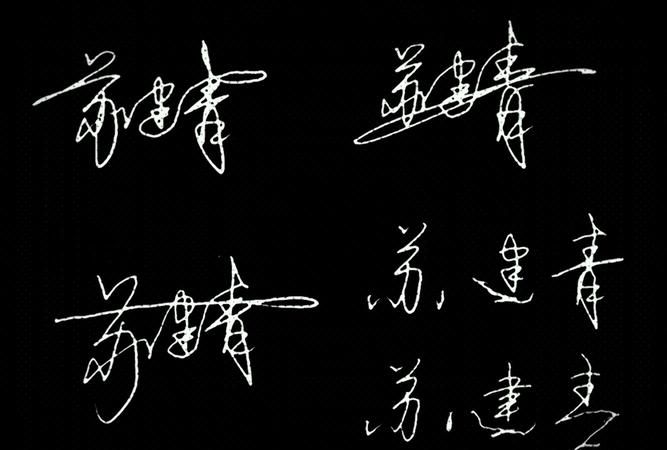 苏建青 苏建青
苏建青 苏建青
苏建青